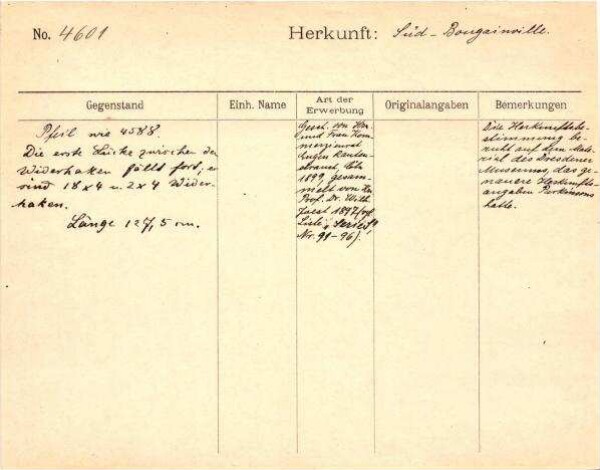 No. 4601
Herkunft: Süd-Bougainville.
Gegenstand
Einh. Name
Art der
Erwerbung
Originalangaben
Bemerkungen
Pfeil wie 4588.
Die erste Lücke zwischen den
Widerhaken fällt fort; es
sind 18 x 4 u. 2 x 4 Wider-
haken.
Länge 127,5 cm.
Gesch. von Herr
und Frau Kom-
merzienrat
Eugen Rauten-
strauch, Cöln
1899, gesam-
melt von
Prof. Dr. Wilh.
Joest 1897
Liste, Serie
Nr. 91-96).
Die Herkunftsbe-
stimmung be-
ruht auf dem Mate-
rial des Dresdener
Museums, das ge-
nauere Herkunfts-
angaben Parkinsons
hatte.